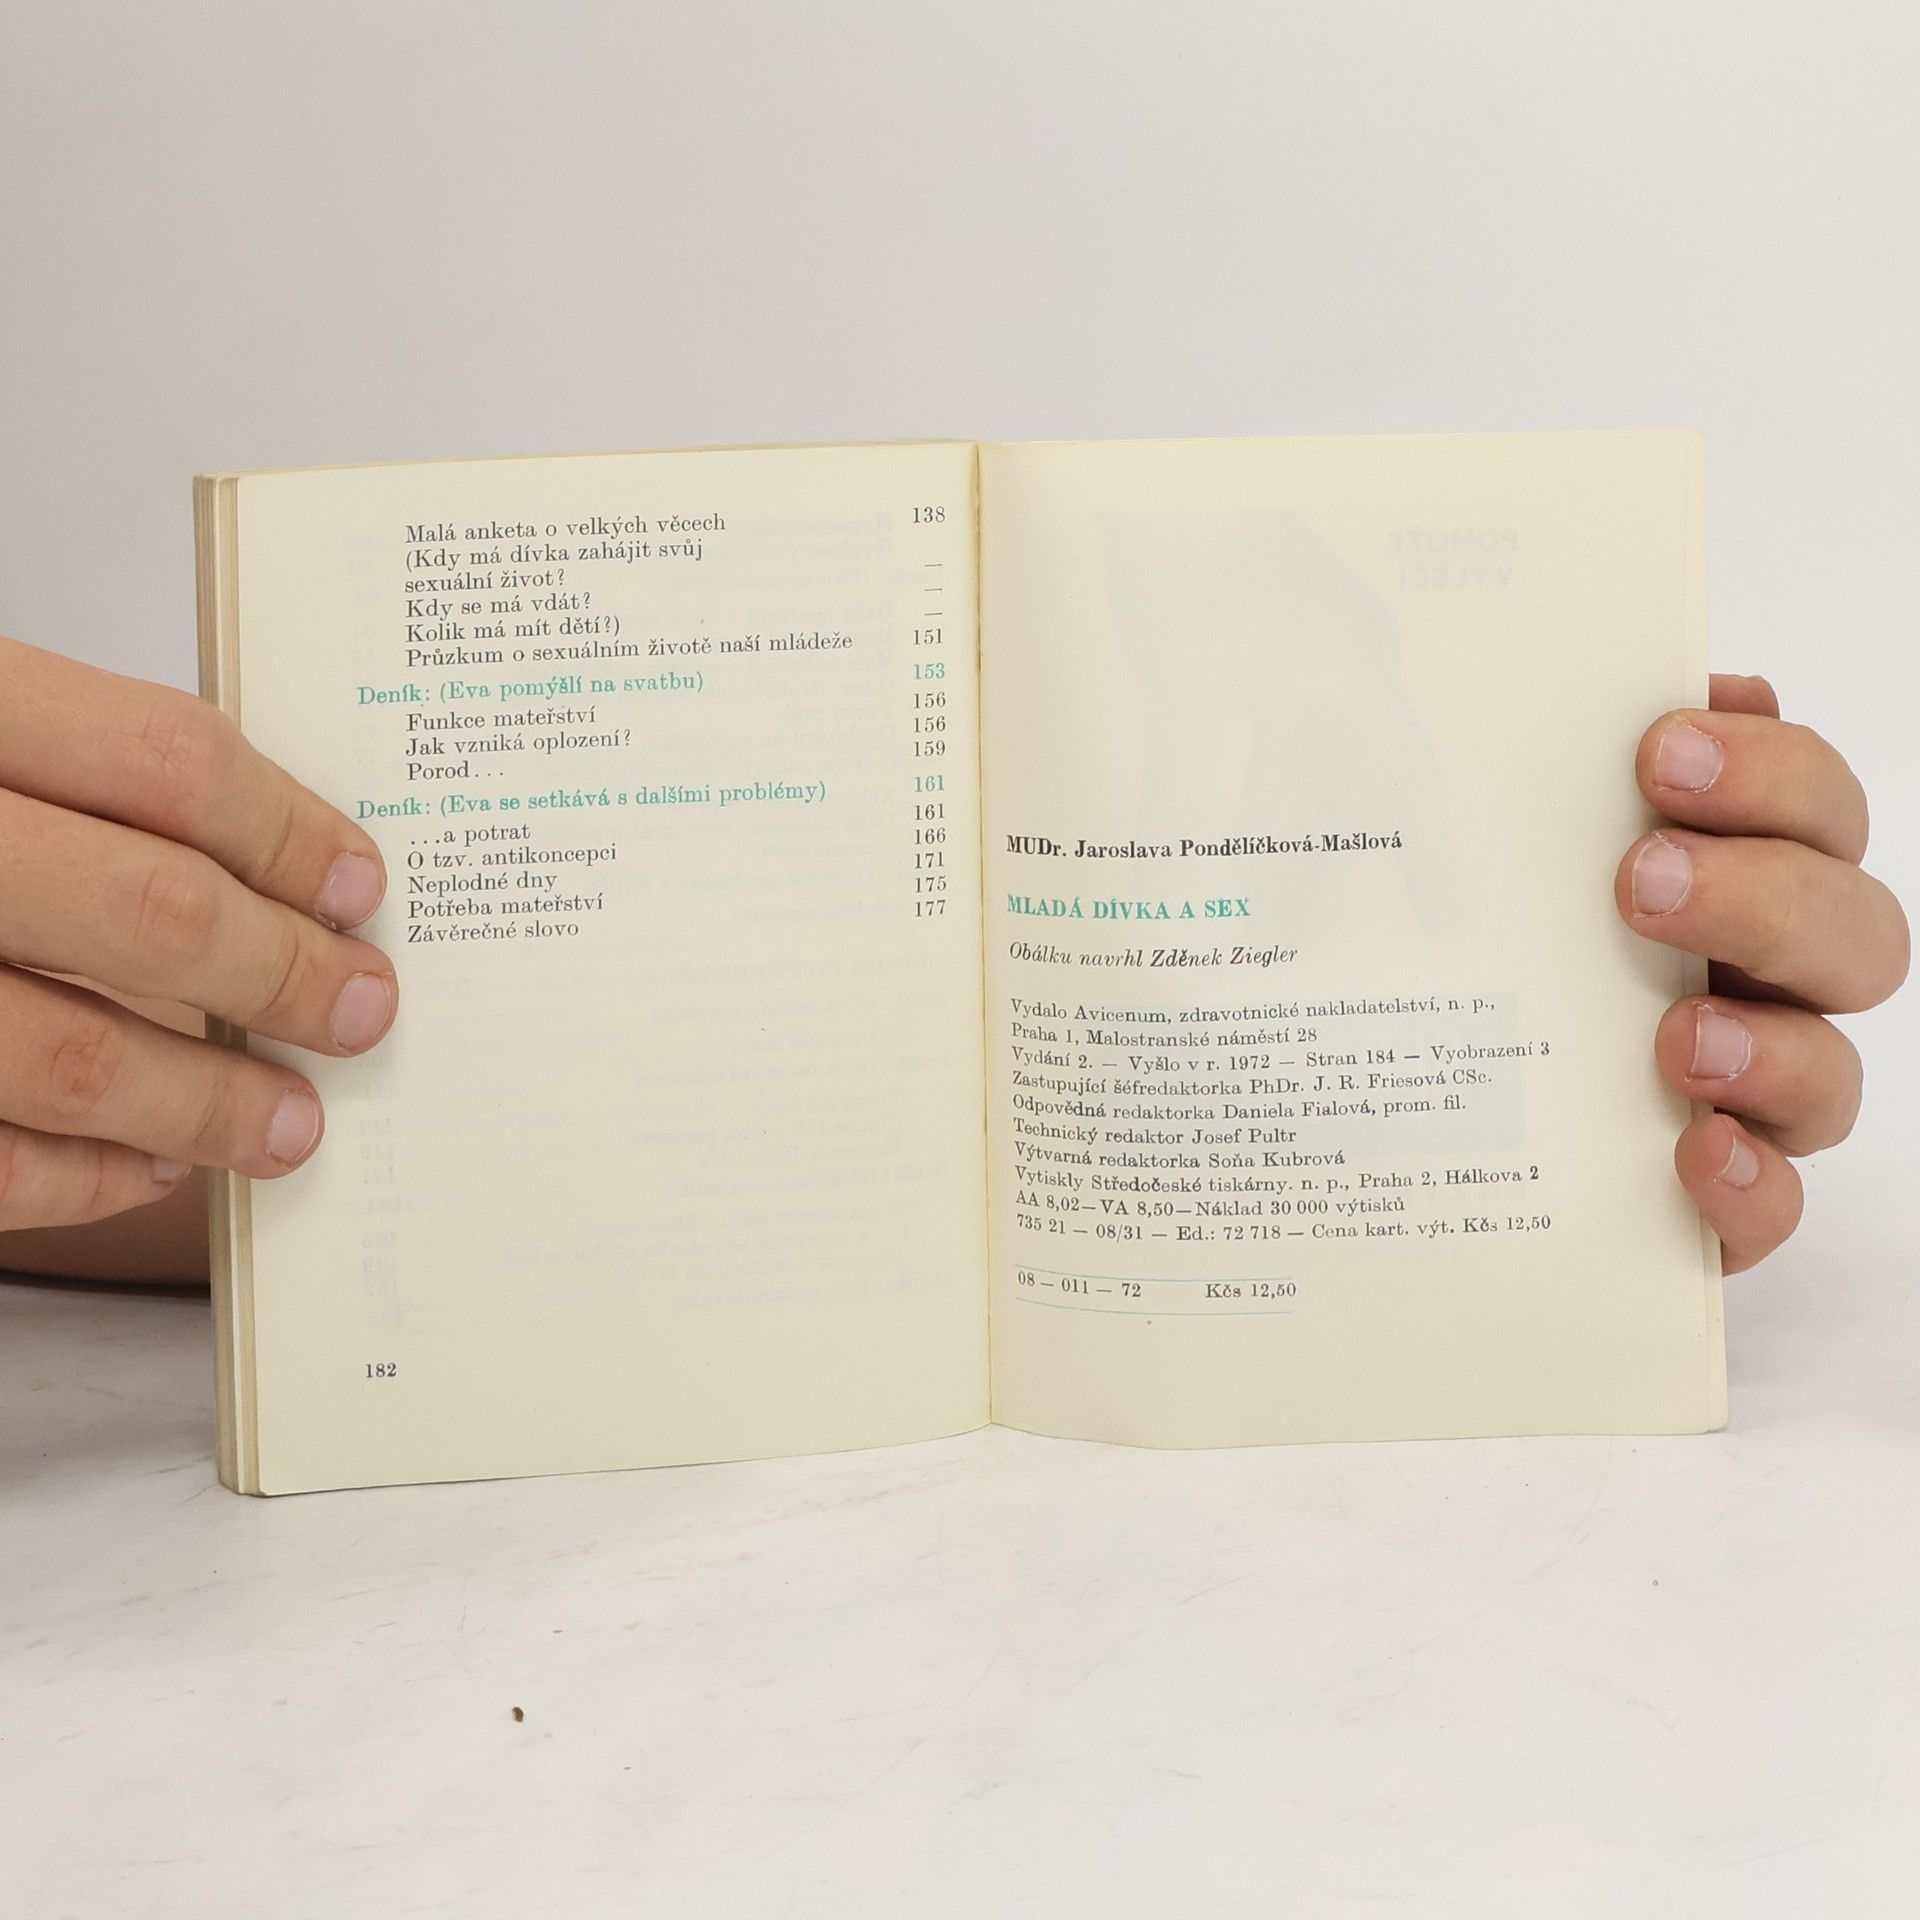 Malá anketa o velkých věcech 138
(Kdy má dívka zahájit svůj
sexuální život? —
Kdy se má vdát? —
Kolik má mít dětí?) —
Průzkum o sexuálním životě naší mládeže 151
Deník: (Eva pomýšlí na svatbu) 153
Funkce mateřství 156
Jak vzniká oplození? 156
Porod... 159
Deník: (Eva se setkává s dalšími problémy) 161
...a potrat 161
O tzv. antikoncepci 166
Neplodné dny 171
Potřeba mateřství 175
Závěrečné slovo 177
182
MUDr. Jaroslava Pondělíčková-Mašlová
MLADÁ DÍVKA A SEX
Obálku navrhl Zděnek Ziegler
Vydalo Avicenum, zdravotnické nakladatelství, n. p.,
Praha 1, Malostranské náměstí 28
Vydání 2. — Vyšlo v r. 1972 — Stran 184 — Vyobrazení 3
Zastupující šéfredaktorka PhDr. J. R. Friesová CSc.
Odpovědná redaktorka Daniela Fialová, prom. fil.
Technický redaktor Josef Pultr
Výtvarná redaktorka Soňa Kubrová
Vytiskly Středočeské tiskárny. n. p., Praha 2, Hálkova 2
AA 8,02—VA 8,50—Náklad 30 000 výtisků
735 21 — 08/31 — Ed.: 72 718 — Cena kart. výt. Kčs 12,50
08 — 011 — 72 Kčs 12,50